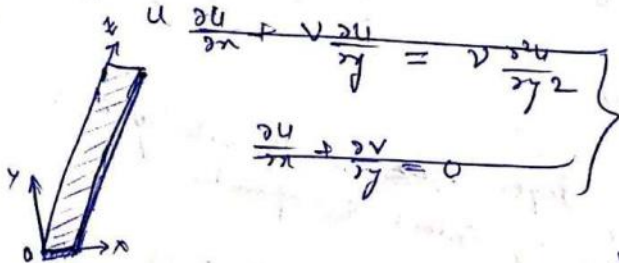 u ∂u/∂x + v ∂u/∂y = ν ∂²u/∂y² }
∂u/∂x + ∂v/∂y = 0
z
y
0 x